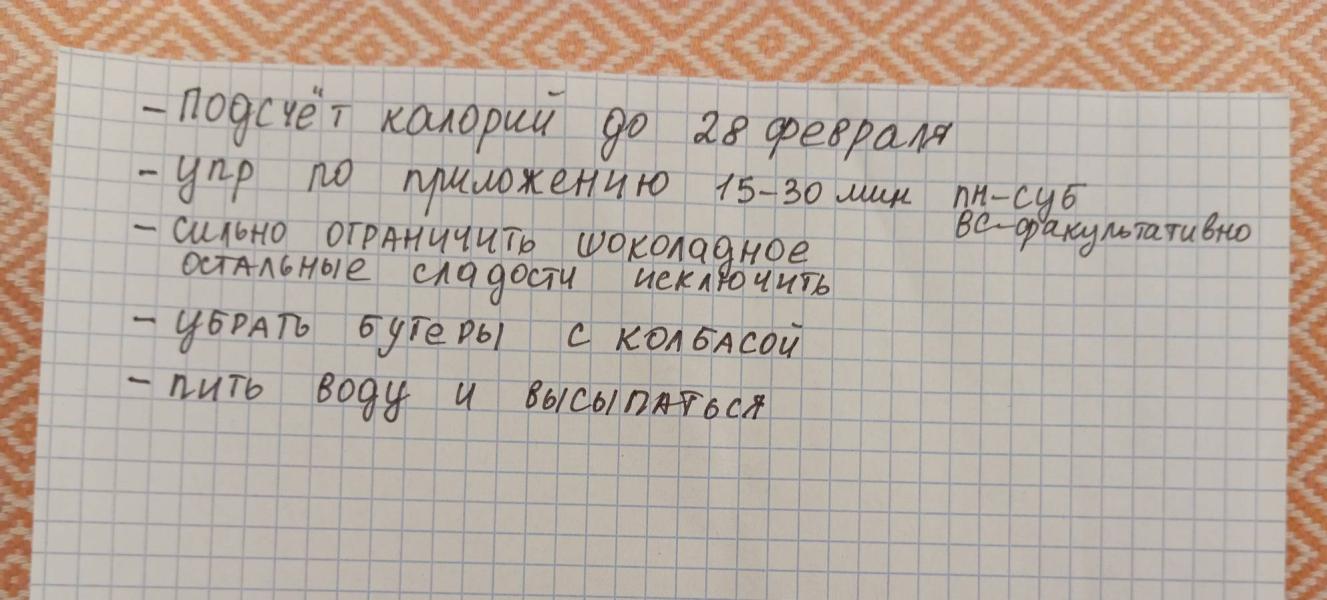 - Подсчёт калорий до 28 февраля
- упр по приложению 15-30 мин пн-суб
вс-факультативно
- сильно ограничить шоколадное
остальные сладости исключить
- убрать бутеры с колбасой
- пить воду и высыпаться